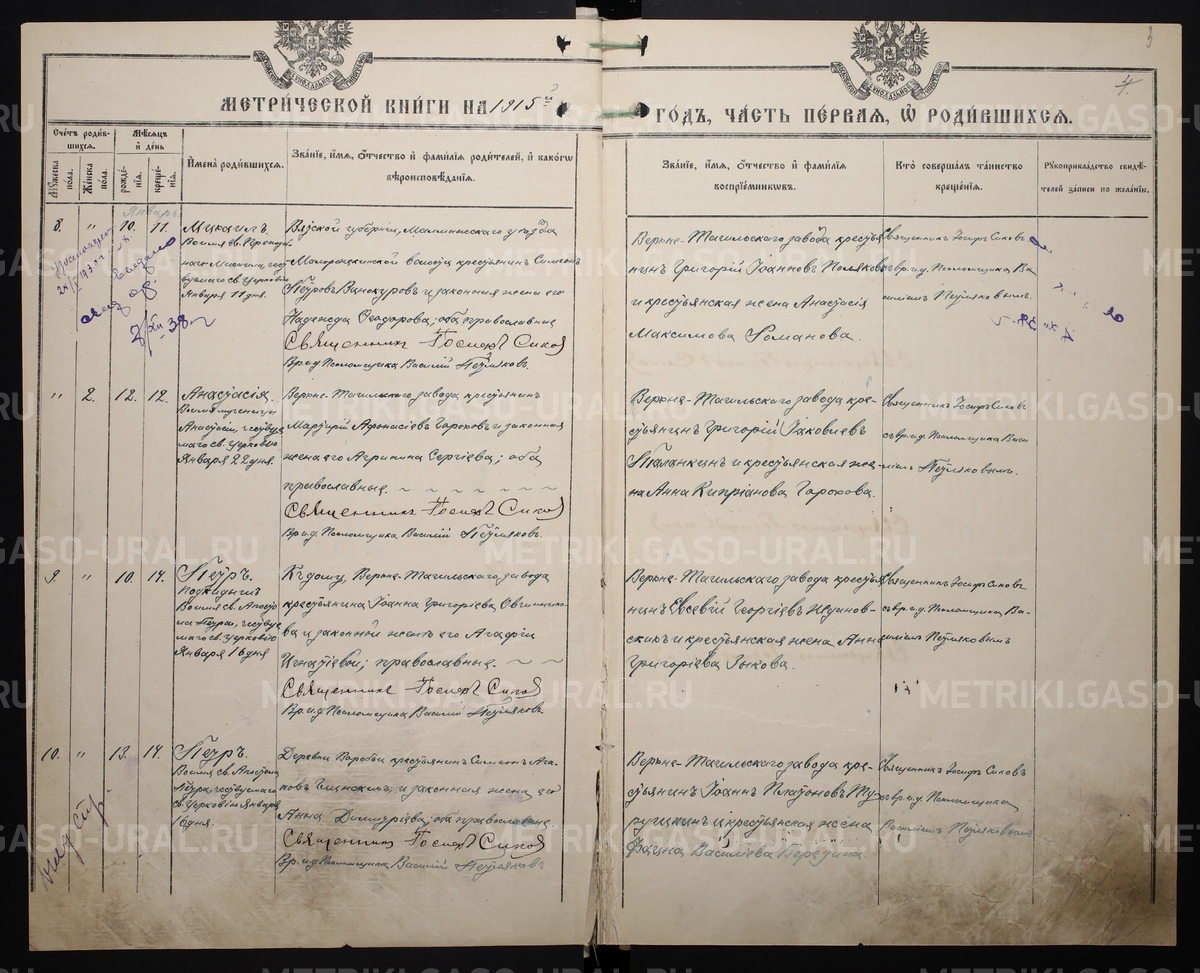 3
4.
МЕТРИ́ЧЕСКОЙ КНИ́ГИ НА 1915й
ГО́ДЪ, ЧА́СТЬ ПЕ́РВАЯ, Ѡ РОДИ́ВШИХСЯ.
Сче́тъ роди́в-
шихся.
Мꙋ́жеска по́ла.
Же́нска по́ла.
Мѣ́сяцъ
и҆ де́нь
рожде́-
нія.
креще́-
нія.
И҆мена̀ роди́вшихся.
Зва́ніе, и҆́мя, ѻ҆́тчество и҆ фами́лія роди́телей, и҆ како́гѡ
вѣроисповѣ́данія.
Зва́ніе, и҆́мя, ѻ҆́тчество и҆ фами́лія
воспріе́мникѡвъ.
Кто̀ соверша́лъ та́инство
креще́нія.
Рꙋкоприкла́дство свидѣ́-
телей за́писи по жела́нію.
Январь
8. " 10. 11.
Михаилъ.
Во имя св. Препод
наго Михаила, чест
вуемаго св. Церковію
Января 11 дня.
Вятской губерніи, Малмыжскаго уѣзда
волости крестьянинъ Симеонъ
Петровъ Винокуровъ и законная жена его
Надежда Ѳеодорова; оба православные
Священникъ Іосифъ Сиковъ
Вр. и д. Псаломщика Василій Петляковъ.
Верхне-Тагильскаго завода крестья
нинъ Григорій Іоанновъ Поляковъ
и крестьянская жена Анастасія
Максимова Романова.
Священникъ Іосифъ Сиковъ
съ вр. и. д. Псаломщика Ва
силіемъ Петляковымъ.
38
" 2. 12. 12.
Анастасія.
Во имя мученицы
Анастасіи, чествуе
маго св. Церковію
Января 22 дня.
Верхне-Тагильскаго завода крестьянинъ
Мартирій Аѳонасіевъ Гороховъ и законная
жена его Агрипина Сергіева; оба
православные.
Священникъ Іосифъ Сиковъ
Вр. и д. Псаломщика Василій Петляковъ.
Верхне-Тагильскаго завода кре-
стьянинъ Григорій Іаковлевъ
Таланкинъ и крестьянская же-
на Анна Кипріанова Горохова.
Священникъ Іосифъ Сиковъ
съ вр. и. д. Псаломщика Васи
ліемъ Петляковымъ.
9. " 10. 14.
Петръ.
подкидышъ
Во имя св. Апосто
ла Петра, чествуе
маго св. Церковію
Января 16 дня
Къ дому, Верхне-Тагильскаго завода
крестьянина Іоанна Григоріева Овчиннико-
ва и законной женѣ его Агафіи
Игнатіевой; православные.
Священникъ Іосифъ Сиковъ
Вр. и д. Псаломщика Василій Петляковъ.
Верхне-Тагильскаго завода крестья
нинъ Евсевій Георгіевъ Жданов-
скихъ и крестьянская жена Анна
Григоріева Зыкова.
Священникъ Іосифъ Сиковъ
съ вр. и. д. Псаломщика Ва-
силіемъ Петляковымъ
10. " 13. 14.
Петръ.
Во имя св. Апостола
Петра, чествуемаго
св. Церковію Января
16 дня.
Деревни Воробьи крестьянинъ Симеонъ Ага-
повъ и законная жена его
Анна Димитріева; оба православные
Священникъ Іосифъ Сиковъ
Вр. и д. Псаломщика Василій Петляковъ
Верхне-Тагильскаго завода кре-
стьянинъ Іоаннъ Платоновъ Ту-
руткинъ и крестьянская жена
Фаина Василіева Вередина.
Священникъ Іосифъ Сиковъ
съ вр. и. д. Псаломщика
Василіемъ Петляковымъ
METRIKI.GASO-URAL.RU